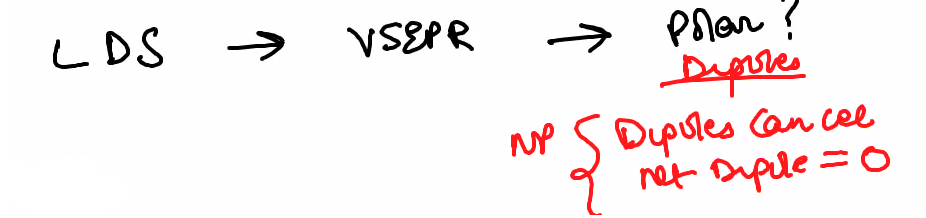 LDS → VSEPR → Polar?
Dipoles
NP { Dipoles Cancel
net Dipole = 0